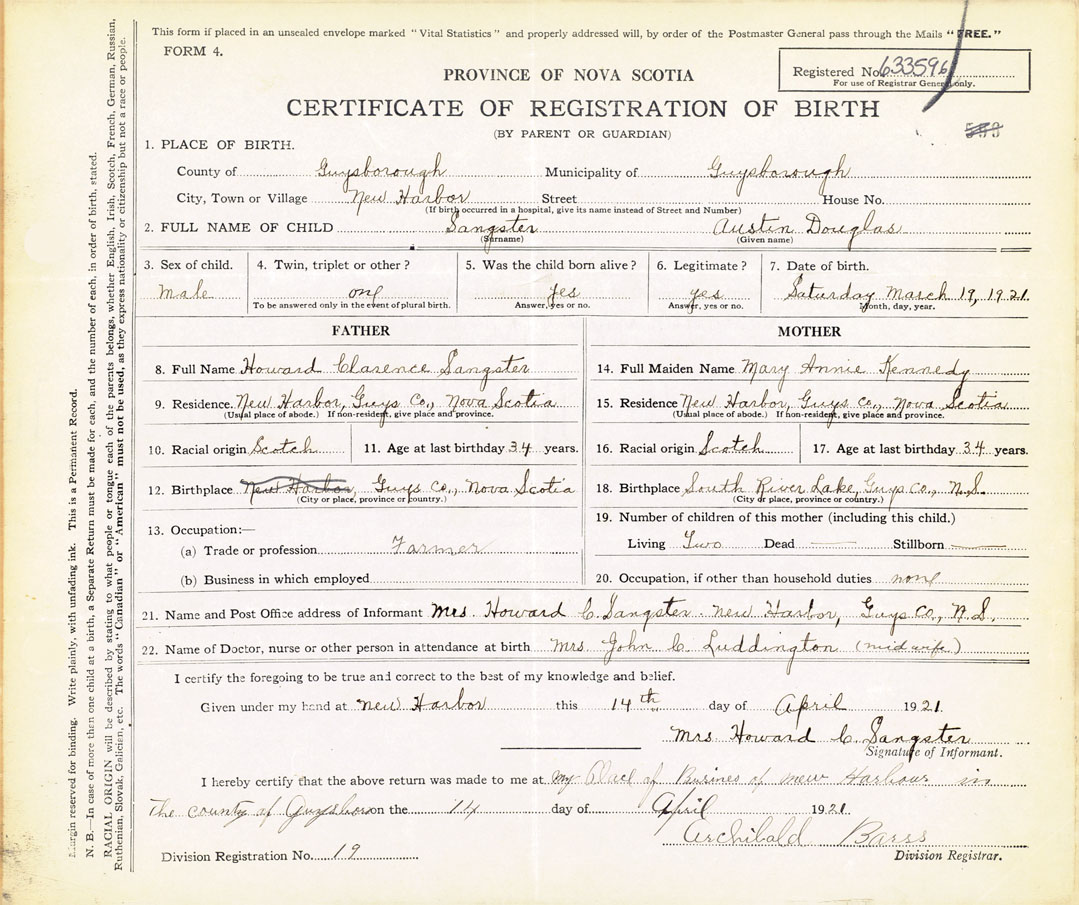 This form if placed in an unsealed envelope marked "Vital Statistics" and properly addressed will, by order of the Postmaster General pass through the Mails "FREE."
FORM 4.
PROVINCE OF NOVA SCOTIA
Registered No. 633596
For use of Registrar General only.
CERTIFICATE OF REGISTRATION OF BIRTH
(BY PARENT OR GUARDIAN)
1. PLACE OF BIRTH.
County of Guysborough Municipality of Guysborough
City, Town or Village New Harbor Street House No.
(If birth occurred in a hospital, give its name instead of Street and Number)
2. FULL NAME OF CHILD Sangster Austin Douglas
(Surname) (Given name)
3. Sex of child. 4. Twin, triplet or other? 5. Was the child born alive? 6. Legitimate? 7. Date of birth.
Male one yes yes Saturday March 19, 1921
To be answered only in the event of plural birth. Answer, yes or no. Answer, yes or no. Month, day, year.
FATHER
8. Full Name Howard Clarence Sangster
9. Residence. New Harbor, Guys Co., Nova Scotia
(Usual place of abode.) If non-resident, give place and province.
10. Racial origin Scotch 11. Age at last birthday 34 years.
12. Birthplace New Harbor, Guys Co., Nova Scotia
(City or place, province or country.)
13. Occupation:—
(a) Trade or profession Farmer
(b) Business in which employed
MOTHER
14. Full Maiden Name Mary Annie Kennedy
15. Residence New Harbor, Guys Co., Nova Scotia
(Usual place of abode.) If non-resident, give place and province.
16. Racial origin Scotch 17. Age at last birthday 34 years.
18. Birthplace South River Lake, Guys Co., N.S.
(City or place, province or country.)
19. Number of children of this mother (including this child.)
Living Two Dead — Stillborn —
20. Occupation, if other than household duties none
21. Name and Post Office address of Informant Mrs. Howard C. Sangster New Harbor, Guys Co., N.S.
22. Name of Doctor, nurse or other person in attendance at birth Mrs. John C. Luddington (midwife)
I certify the foregoing to be true and correct to the best of my knowledge and belief.
Given under my hand at New Harbor this 14th day of April 1921.
Mrs. Howard C. Sangster
Signature of Informant.
I hereby certify that the above return was made to me at my Place of Busines of New Harbour in
the county of on the 14 day of April 1921.
Archibald Barss
Division Registrar.
Division Registration No. 19
Margin reserved for binding. Write plainly, with unfading ink. This is a Permanent Record.
N. B.—In case of more than one child at a birth, a Separate Return must be made for each, and the number of each, in order of birth, stated.
RACIAL ORIGIN will be described by stating to what people or tongue each of the parents belongs, whether English, Irish, Scotch, French, German, Russian,
Ruthenian, Slovak, Galician, etc. The words "Canadian" or "American" must not be used, as they express nationality or citizenship but not a race or people.